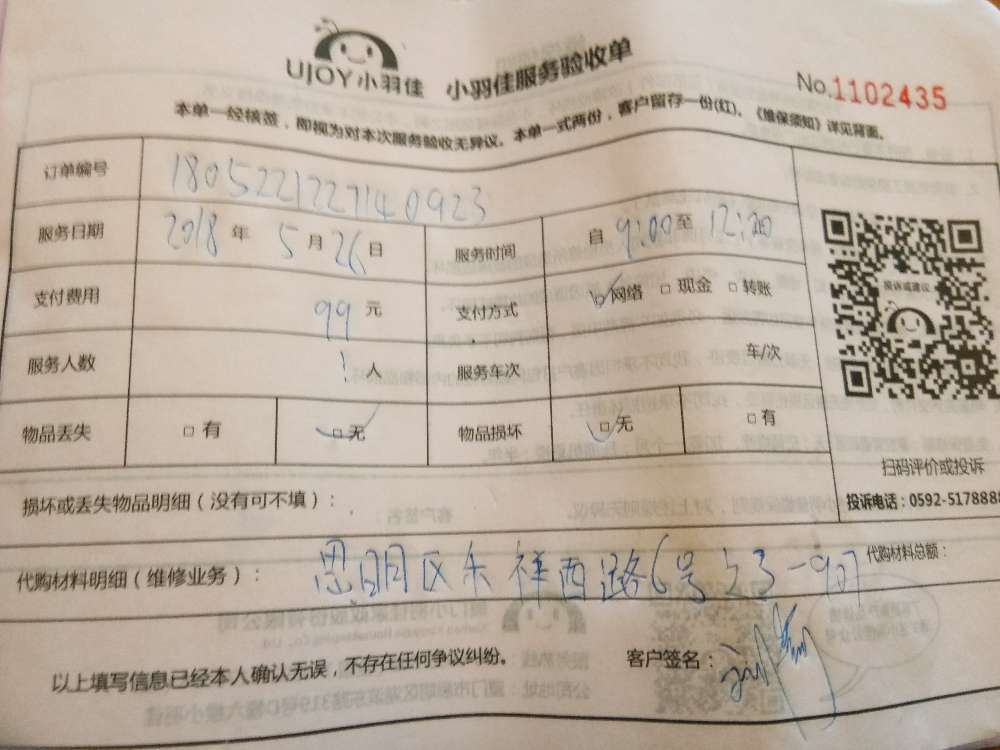 UJOY小羽佳 小羽佳服务验收单 No.1102435
本单一经核签，即视为对本次服务验收无异议。本单一式两份，客户留存一份(红)。《维保须知》详见背面。
订单编号 180522122714 0923
服务日期 2018 年 5 月 26 日 服务时间 自 9:00 至 12:00
支付费用 99 元 支付方式 网络 现金 转账
服务人数 1 人 服务车次 车/次
物品丢失 有 无 物品损坏 无 有
投诉或建议
扫码评价或投诉
投诉电话：0592-5178888
损坏或丢失物品明细（没有可不填）：
代购材料明细（维修业务）： 思明区 祥西路6号 907 代购材料总额：
以上填写信息已经本人确认无误，不存在任何争议纠纷。 客户签名：